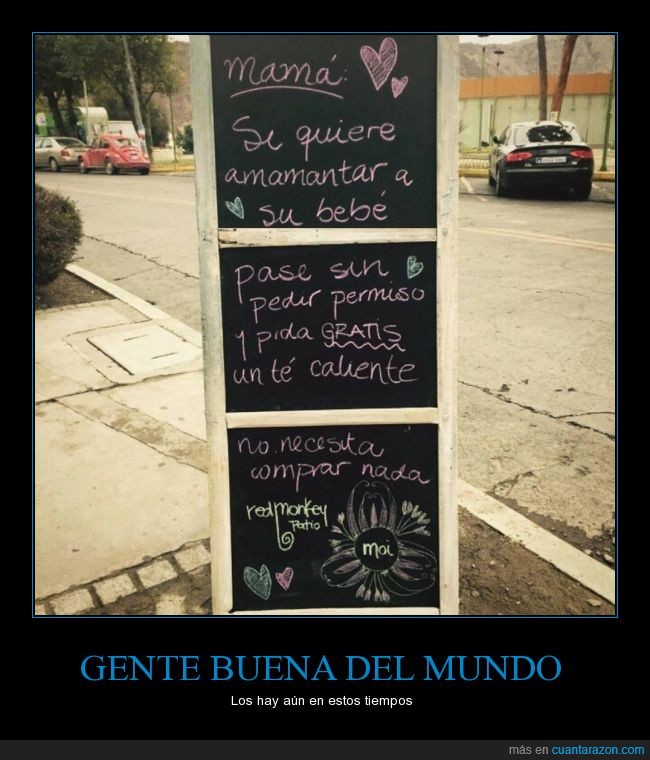 mamá:
Si quiere
amamantar a
su bebé
pase sin
pedir permiso
y pida GRATIS
un té caliente
no necesita
comprar nada
redmonkey
Patio
moi
GENTE BUENA DEL MUNDO
Los hay aún en estos tiempos
más en cuantarazon.com